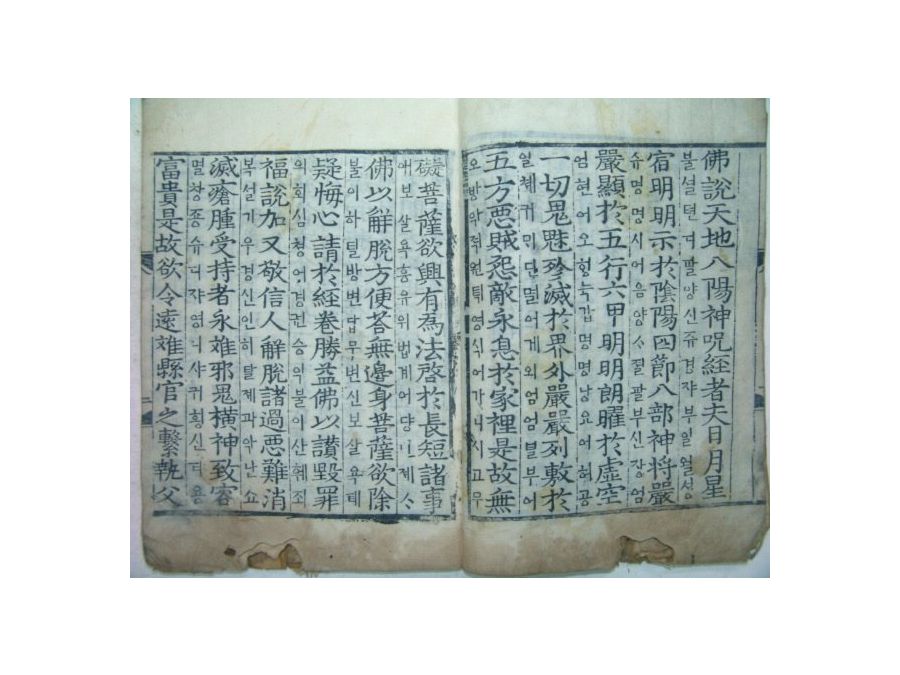 佛說天地八陽神呪経者夫日月星
불셜텬디팔양신쥬경쟈부일월셩
宿明明示於陰陽四節八部神将嚴
슈명명시어음양ᄉᆞ졀팔부신쟝엄
嚴顯於五行六甲明明朗曜於虛空
엄현어오ᄒᆡᆼ뉵갑명명낭요어허공
一切鬼魅殄滅於界外嚴嚴列敷於
일쳬귀ᄆᆡ딘멸어계외엄엄녈부어
五方惡賊怨敵永息於家裡是故無
오방악적원뎍영식어가니시고무
礙菩薩欲興有為法啓於長短諸事
애보살욕흥유위법계어댱단졔ᄉᆞ
佛以解脫方便荅無邊身菩薩欲除
불이하탈방변답무변신보살욕뎨
疑悔心請於経卷勝益佛以讃毀罪
의회심청어경권승악불이산훼죄
福說加又敬信人解脫諸過惡難消
복셜가우경신인ᄒᆡ탈졔과악난쇼
滅瘡腫受持者永離邪鬼橫神致富
멸창종슈디쟈영니샤귀횡신티
富貴是故欲令遠離縣官之繋執父